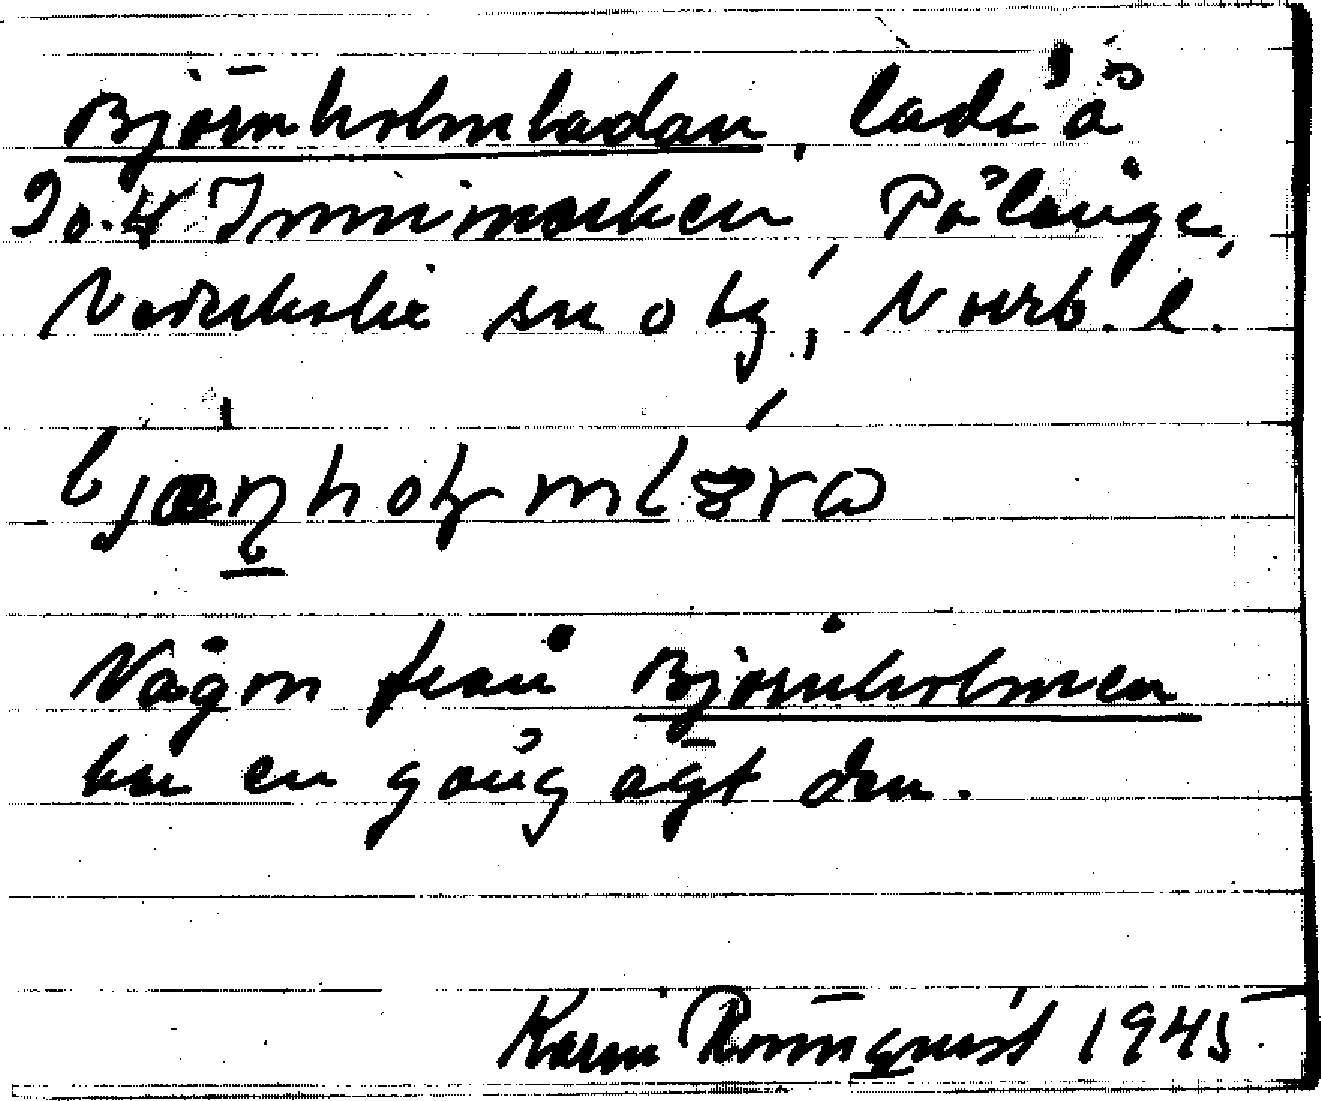 Björnholmladan, lada å
Jo. 4 Innimarken, Pålänge,
Nederkalix sn o tg, Norrb. l.
bjœṇholmlara
Någon från Björnholmen
har en gång ägt den.
Karin Rönnqvist 1945